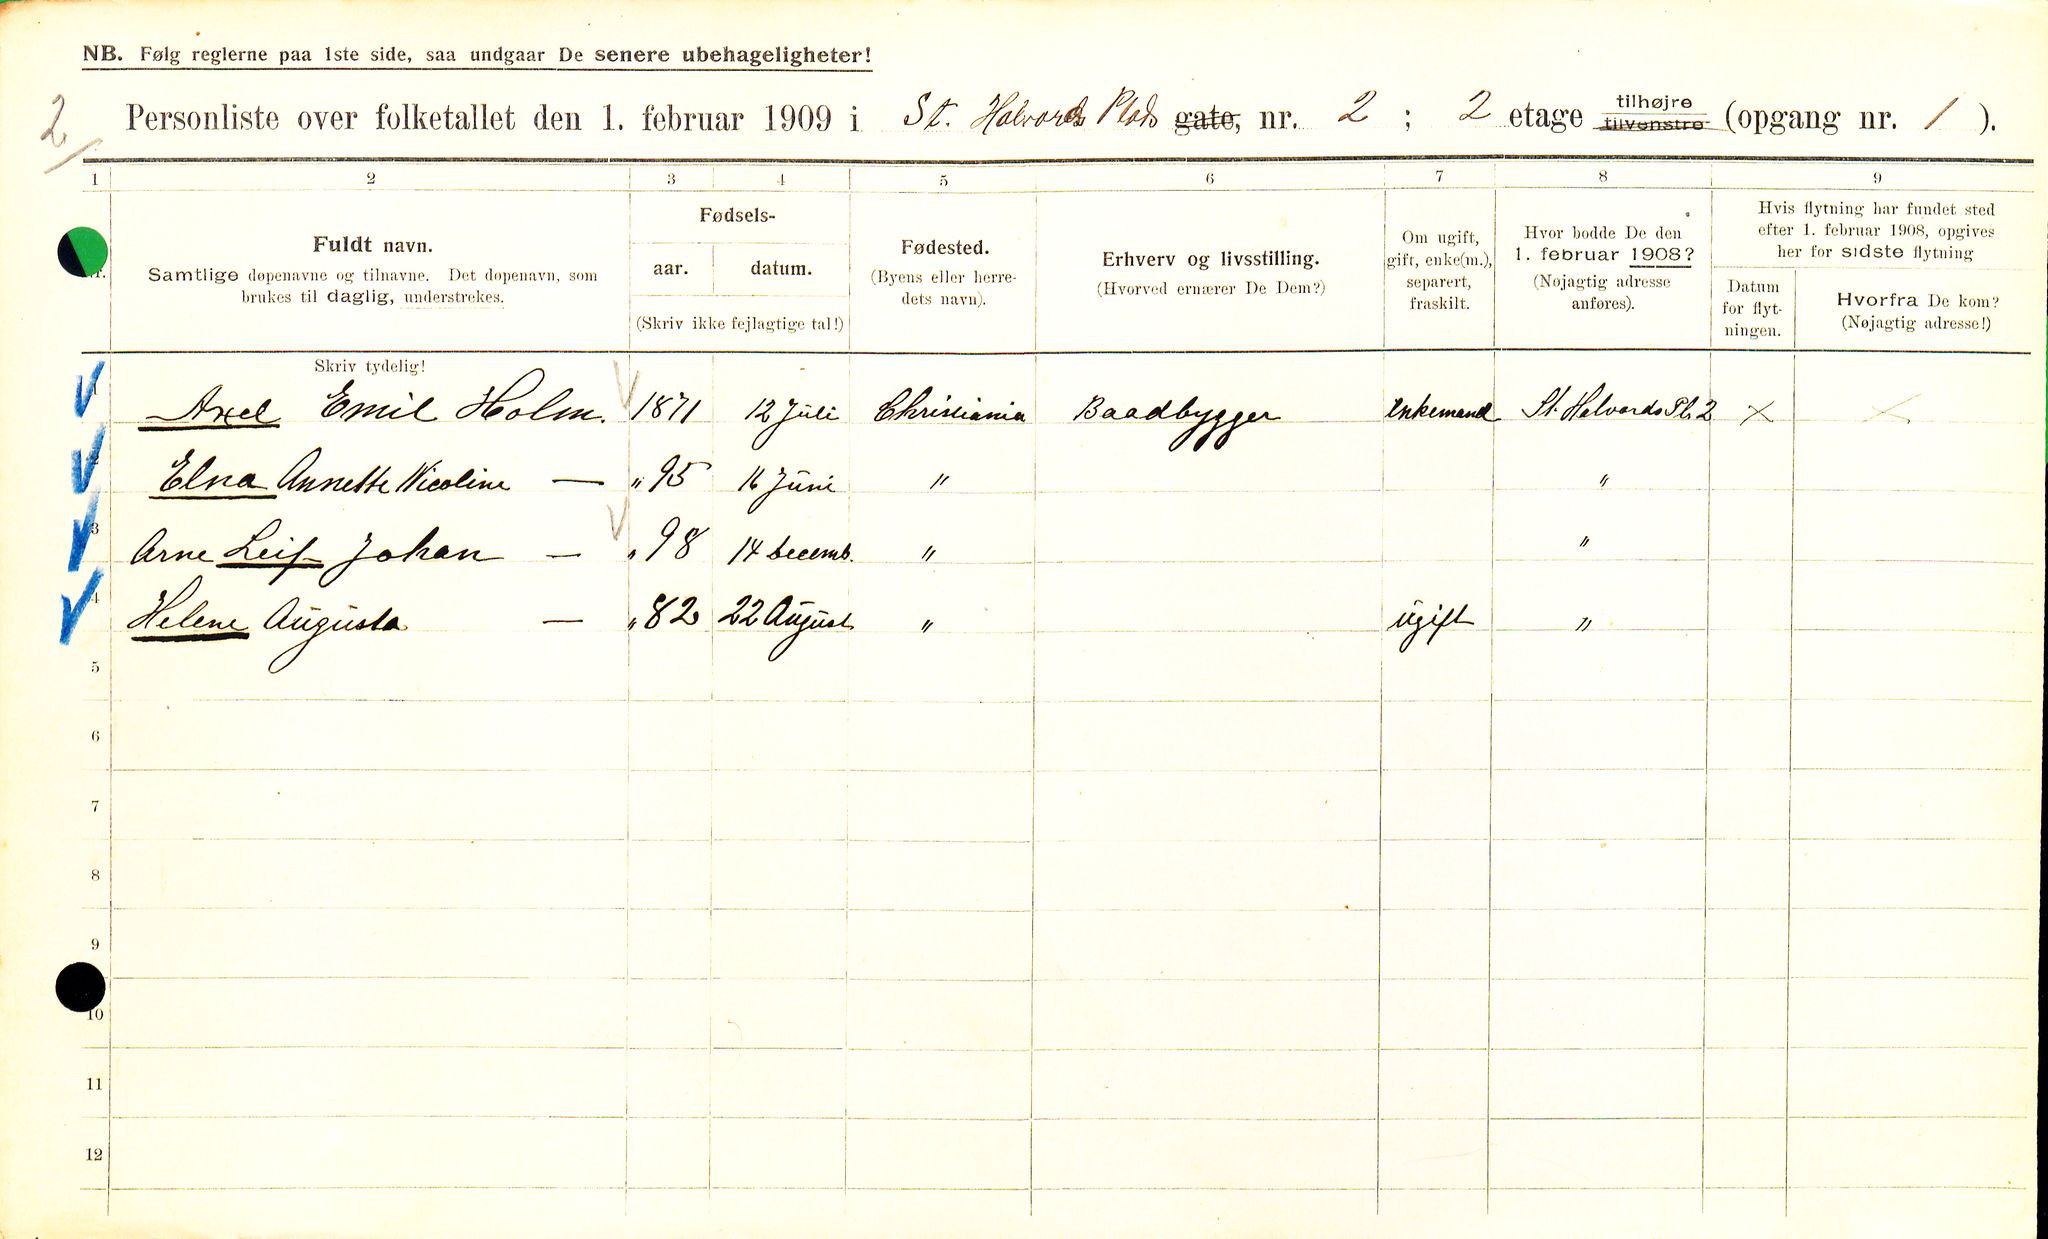 NB. Følg reglerne paa 1ste side, saa undgaar De senere ubehageligheter!
2
Personliste over folketallet den 1. februar 1909 i St. Halvords Plads gate, nr. 2 ; 2 etage tilhøjre tilvenstre (opgang nr. 1 ).
1 2 3 4 5 6 7 8 9
Fuldt navn.
Samtlige døpenavne og tilnavne. Det døpenavn, som
brukes til daglig, understrekes.
Fødsels-
aar. datum.
(Skriv ikke fejlagtige tal!)
Fødested.
(Byens eller herre-
dets navn).
Erhverv og livsstilling.
(Hvorved ernærer De Dem?)
Om ugift,
gift, enke(m.),
separert,
fraskilt.
Hvor bodde De den
1. februar 1908?
(Nøjagtig adresse
anføres).
Hvis flytning har fundet sted
efter 1. februar 1908, opgives
her for sidste flytning
Datum
for flyt-
ningen.
Hvorfra De kom?
(Nøjagtig adresse!)
Skriv tydelig!
1 Axel Emil Holm. 1871 12 Juli Christiania Baadbygger Enkemand St. Halvords Pl. 2 × ×
2 Elna Annette Nicoline — " 95 16 Juni " "
3 Arne Leif Johan — " 98 14 decemb. " "
4 Helene Augusta — " 82 22 August " ugift "
5
6
7
8
9
10
11
12